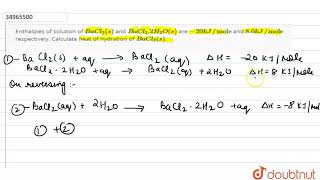 34965500
Enthalpies of solution of BaCl₂(s) and BaCl₂.2H₂O(s) are −20kJ/mole and 8.0kJ/mole
respectively. Calculate heat of hydration of BaCl₂(s).
①- Ba Cl₂(s) + aq ⟶ BaCl₂ (aq) ΔH = -20 KJ/mole
BaCl₂·2H₂O + aq ⟶ BaCl₂ (aq) + 2H₂O ΔH = 8 KJ/mole
On reversing :-
②- BaCl₂(aq) + 2H₂O ⟶ BaCl₂·2H₂O + aq ΔH = -8 KJ/mole
① + ②
doubtnut